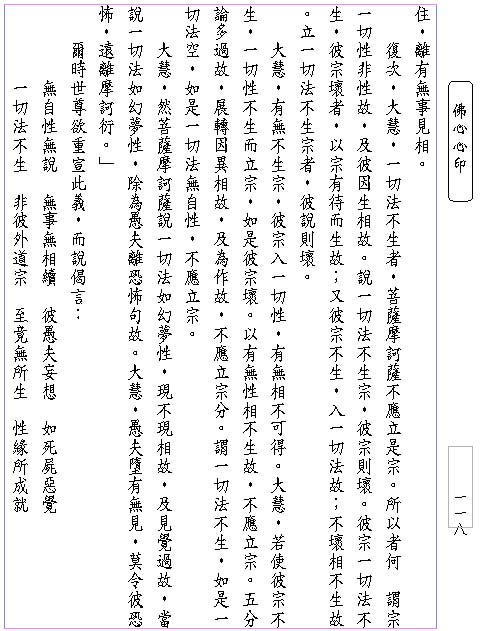 佛心心印
一一八
住，離有無事見相。
復次，大慧，一切法不生者，菩薩摩訶薩不應立是宗。所以者何　謂宗
一切性非性故，及彼因生相故。說一切法不生宗，彼宗則壞。彼宗一切法不
生，彼宗壞者，以宗有待而生故；又彼宗不生，入一切法故；不壞相不生故
。立一切法不生宗者，彼說則壞。
大慧，有無不生宗，彼宗入一切性，有無相不可得。大慧，若使彼宗不
生，一切性不生而立宗，如是彼宗壞。以有無性相不生故，不應立宗。五分
論多過故，展轉因異相故，及為作故，不應立宗分。謂一切法不生，如是一
切法空，如是一切法無自性，不應立宗。
大慧，然菩薩摩訶薩說一切法如幻夢性，現不現相故，及見覺過故，當
說一切法如幻夢性，除為愚夫離恐怖句故。大慧，愚夫墮有無見，莫令彼恐
怖，遠離摩訶衍。」
爾時世尊欲重宣此義，而說偈言：
無自性無說　無事無相續　彼愚夫妄想　如死屍惡覺
一切法不生　非彼外道宗　至竟無所生　性緣所成就